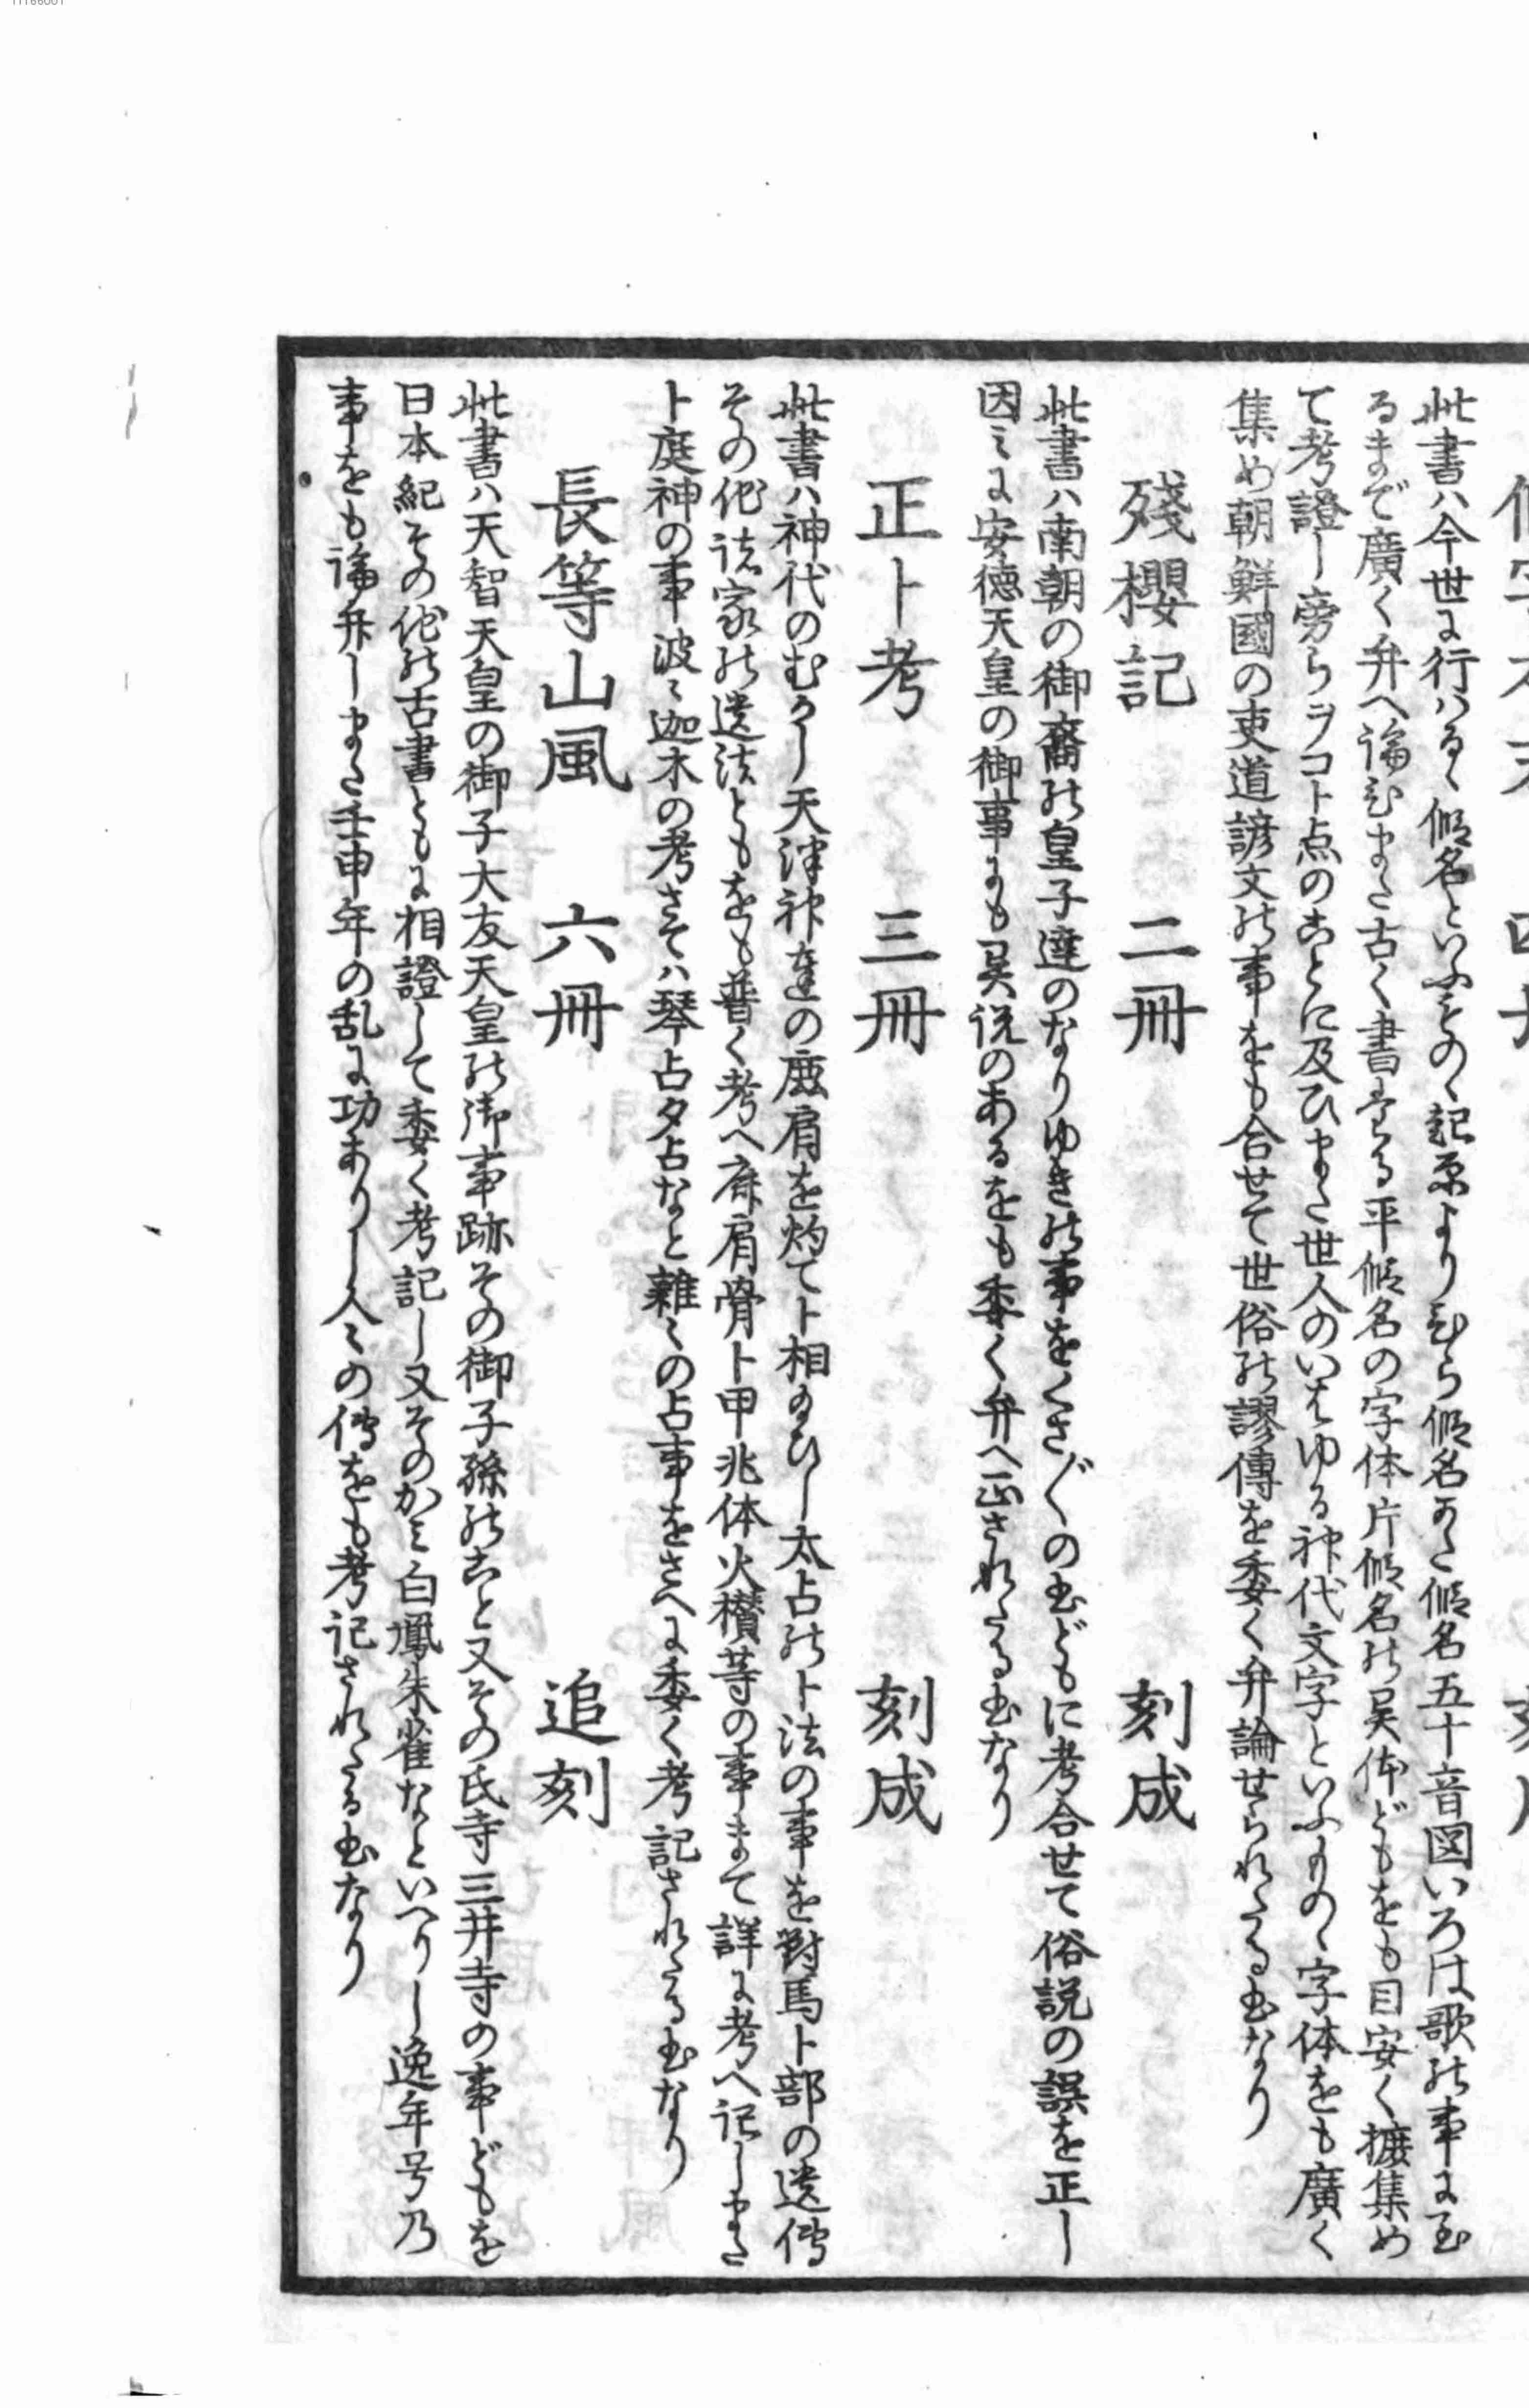 此書ハ今世に行ハるゝ假名といふものゝ起原よりひら假名かた假名五十音図いろは歌の事に至
るまで廣く弁へ論ひまた古く書たる平假名の字体片假名の異体どもをも目安く摭集め
て考證し旁らヲコト点のことに及ひまた世人のいはゆる神代文字といふものゝ字体をも廣く
集め朝鮮國の吏道諺文の事をも合せて世俗の謬傳を委く弁論せられたる書なり
殘櫻記 二冊 刻成
此書ハ南朝の御裔の皇子達のなりゆき の事をくさ〴〵の書どもに考合せて俗説の誤を正し
因ミに安徳天皇の御事にも異説のあるをも委く弁へ正されたる書なり
正卜考 三冊 刻成
此書ハ神代のむかし天津神達の鹿肩を灼て卜相給ひし太占の卜法の事を對馬卜部の遺傳
その他諸家の遺法ともをも普く考へ鹿肩骨卜甲兆体火櫕等の事まて詳に考へ記しまた
卜庭神の事波ゝ迦木の考さてハ琴占夕占なと雜〻の占事をさへに委く考記されたる書なり
長等山風 六冊 追刻
此書ハ天智天皇の御子大友天皇の御事跡その御子孫のこと又その氏寺三井寺の事どもを
日本紀その他の古書ともに相證して委く考記し又そのかミ白鳳朱雀なといへりし逸年号乃
事をも論弁しまた壬申年の乱に功ありし人〻の傳をも考記されたる書なり